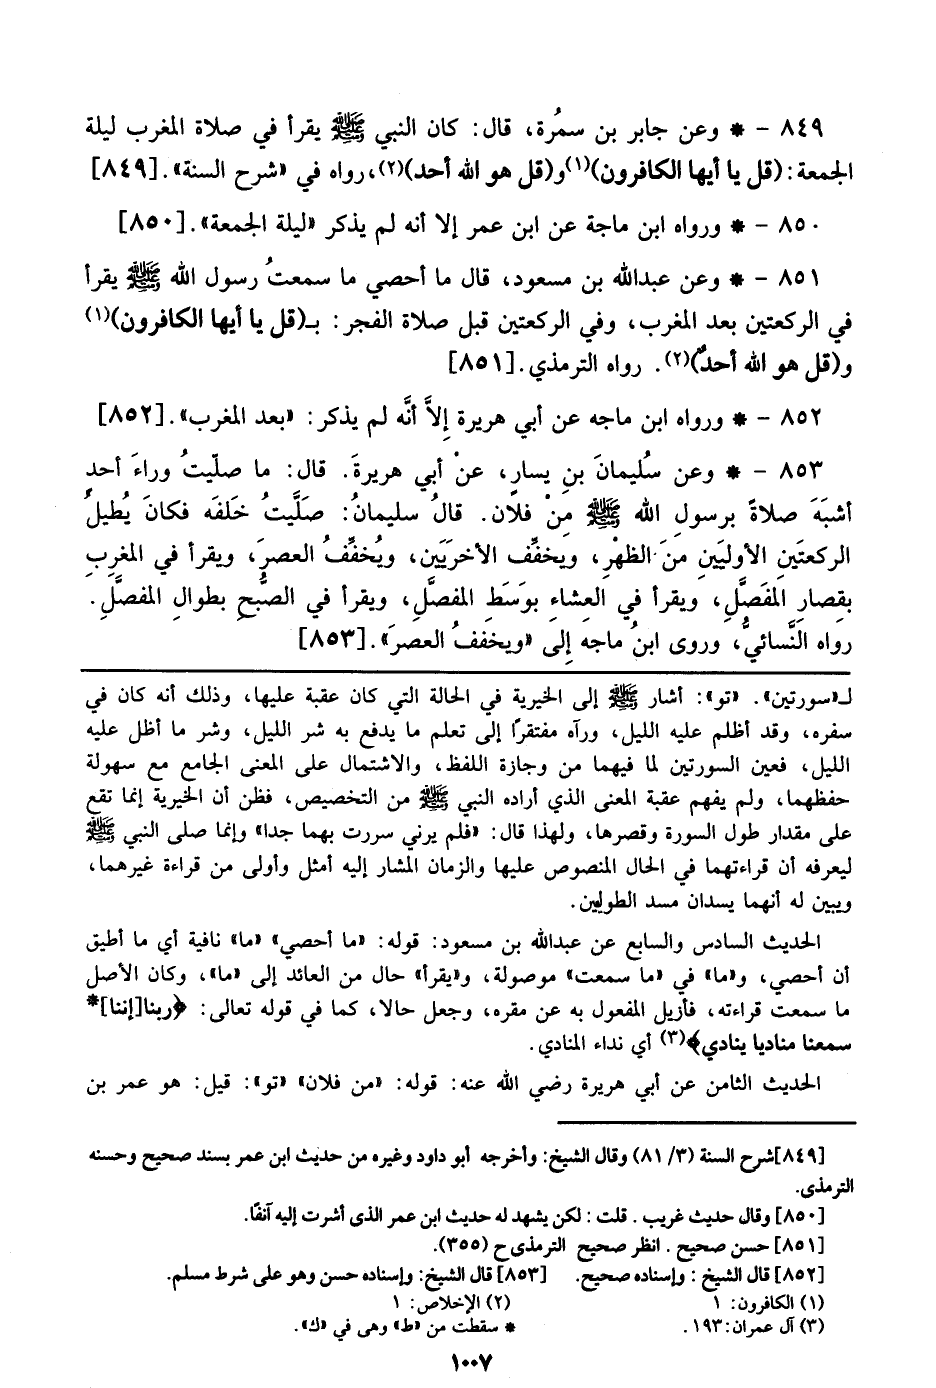 ٨٤٩ – * وعن جابر بن سمُرة، قال: كان النبي ﷺ يقرأ في صلاة المغرب ليلة
الجمعة: (قل يا أيها الكافرون)(١) و(قل هو الله أحد)(٢)، رواه في «شرح السنة». [٨٤٩]
٨٥٠ – * ورواه ابن ماجة عن ابن عمر إلا أنه لم يذكر «ليلة الجمعة». [٨٥٠]
٨٥١ – * وعن عبدالله بن مسعود، قال ما أحصي ما سمعتُ رسول الله ﷺ يقرأ
في الركعتين بعد المغرب، وفي الركعتين قبل صلاة الفجر: بـ(قل يا أيها الكافرون)(١)
و(قل هو الله أحدٌ)(٢). رواه الترمذي. [٨٥١]
٨٥٢ – * ورواه ابن ماجه عن أبي هريرة إِلاَّ أنَّه لم يذكر: «بعد المغرب». [٨٥٢]
٨٥٣ – * وعن سُليمانَ بنِ يسارٍ، عنْ أبي هريرةَ. قال: ما صلّيتُ وراءَ أحدٍ
أشبَهَ صلاةً برسولِ الله ﷺ مِنْ فلان. قالُ سليمانُ: صلَّيتُ خلفَه فكانَ يُطيلُ
الركعتَينِ الأوليَينِ منَ الظهْرِ، ويخفِّف الأخرَيَين، ويُخفِّفُ العصرَ، ويقرأ في المغربِ
بقِصارِ المفَصَّلِ، ويقرأ في العِشاءِ بوَسَطِ المفصلَّ، ويقرأ في الصُّبحِ بطوالِ المفصَّلِ.
رواه النَّسائيُّ، وروى ابنُ ماجه إِلى «ويخففُ العصرَ». [٨٥٣]
لـ«سورتين». «تو»: أشار ﷺ إلى الخيرية في الحالة التي كان عقبة عليها، وذلك أنه كان في
سفره، وقد أظلم عليه الليل، ورآه مفتقرًا إلى تعلم ما يدفع به شر الليل، وشر ما أظل عليه
الليل، فعين السورتين لما فيهما من وجازة اللفظ، والاشتمال على المعنى الجامع مع سهولة
حفظهما، ولم يفهم عقبة المعنى الذي أراده النبي ﷺ من التخصيص، فظن أن الخيرية إنما تقع
على مقدار طول السورة وقصرها، ولهذا قال: «فلم يرني سررت بهما جدا» وإنما صلى النبي ﷺ
ليعرفه أن قراءتهما في الحال المنصوص عليها والزمان المشار إليه أمثل وأولى من قراءة غيرهما،
ويبين له أنهما يسدان مسد الطولين.
الحديث السادس والسابع عن عبدالله بن مسعود: قوله: «ما أحصي» «ما» نافية أي ما أطيق
أن أحصي، و«ما» في «ما سمعت» موصولة، و«يقرأ» حال من العائد إلى «ما»، وكان الأصل
ما سمعت قراءته، فأزيل المفعول به عن مقره، وجعل حالا، كما في قوله تعالى: ﴿ربنا[إننا]*
سمعنا مناديا ينادي﴾(٣) أي نداء المنادي.
الحديث الثامن عن أبي هريرة رضي الله عنه: قوله: «من فلان» «تو»: قيل: هو عمر بن
[٨٤٩] شرح السنة (٣/ ٨١) وقال الشيخ: وأخرجه أبو داود وغيره من حديث ابن عمر بسند صحيح وحسنه
الترمذى.
[٨٥٠] وقال حديث غريب. قلت: لكن يشهد له حديث ابن عمر الذى أشرت إليه آنفًا.
[٨٥١] حسن صحيح. انظر صحيح الترمذى ح (٣٥٥).
[٨٥٢] قال الشيخ: وإسناده صحيح. [٨٥٣] قال الشيخ: وإسناده حسن وهو على شرط مسلم.
(١) الكافرون: ١ (٢) الإخلاص: ١
(٣) آل عمران: ١٩٣. * سقطت من «ط» وهى في «ك».
١٠٠٧